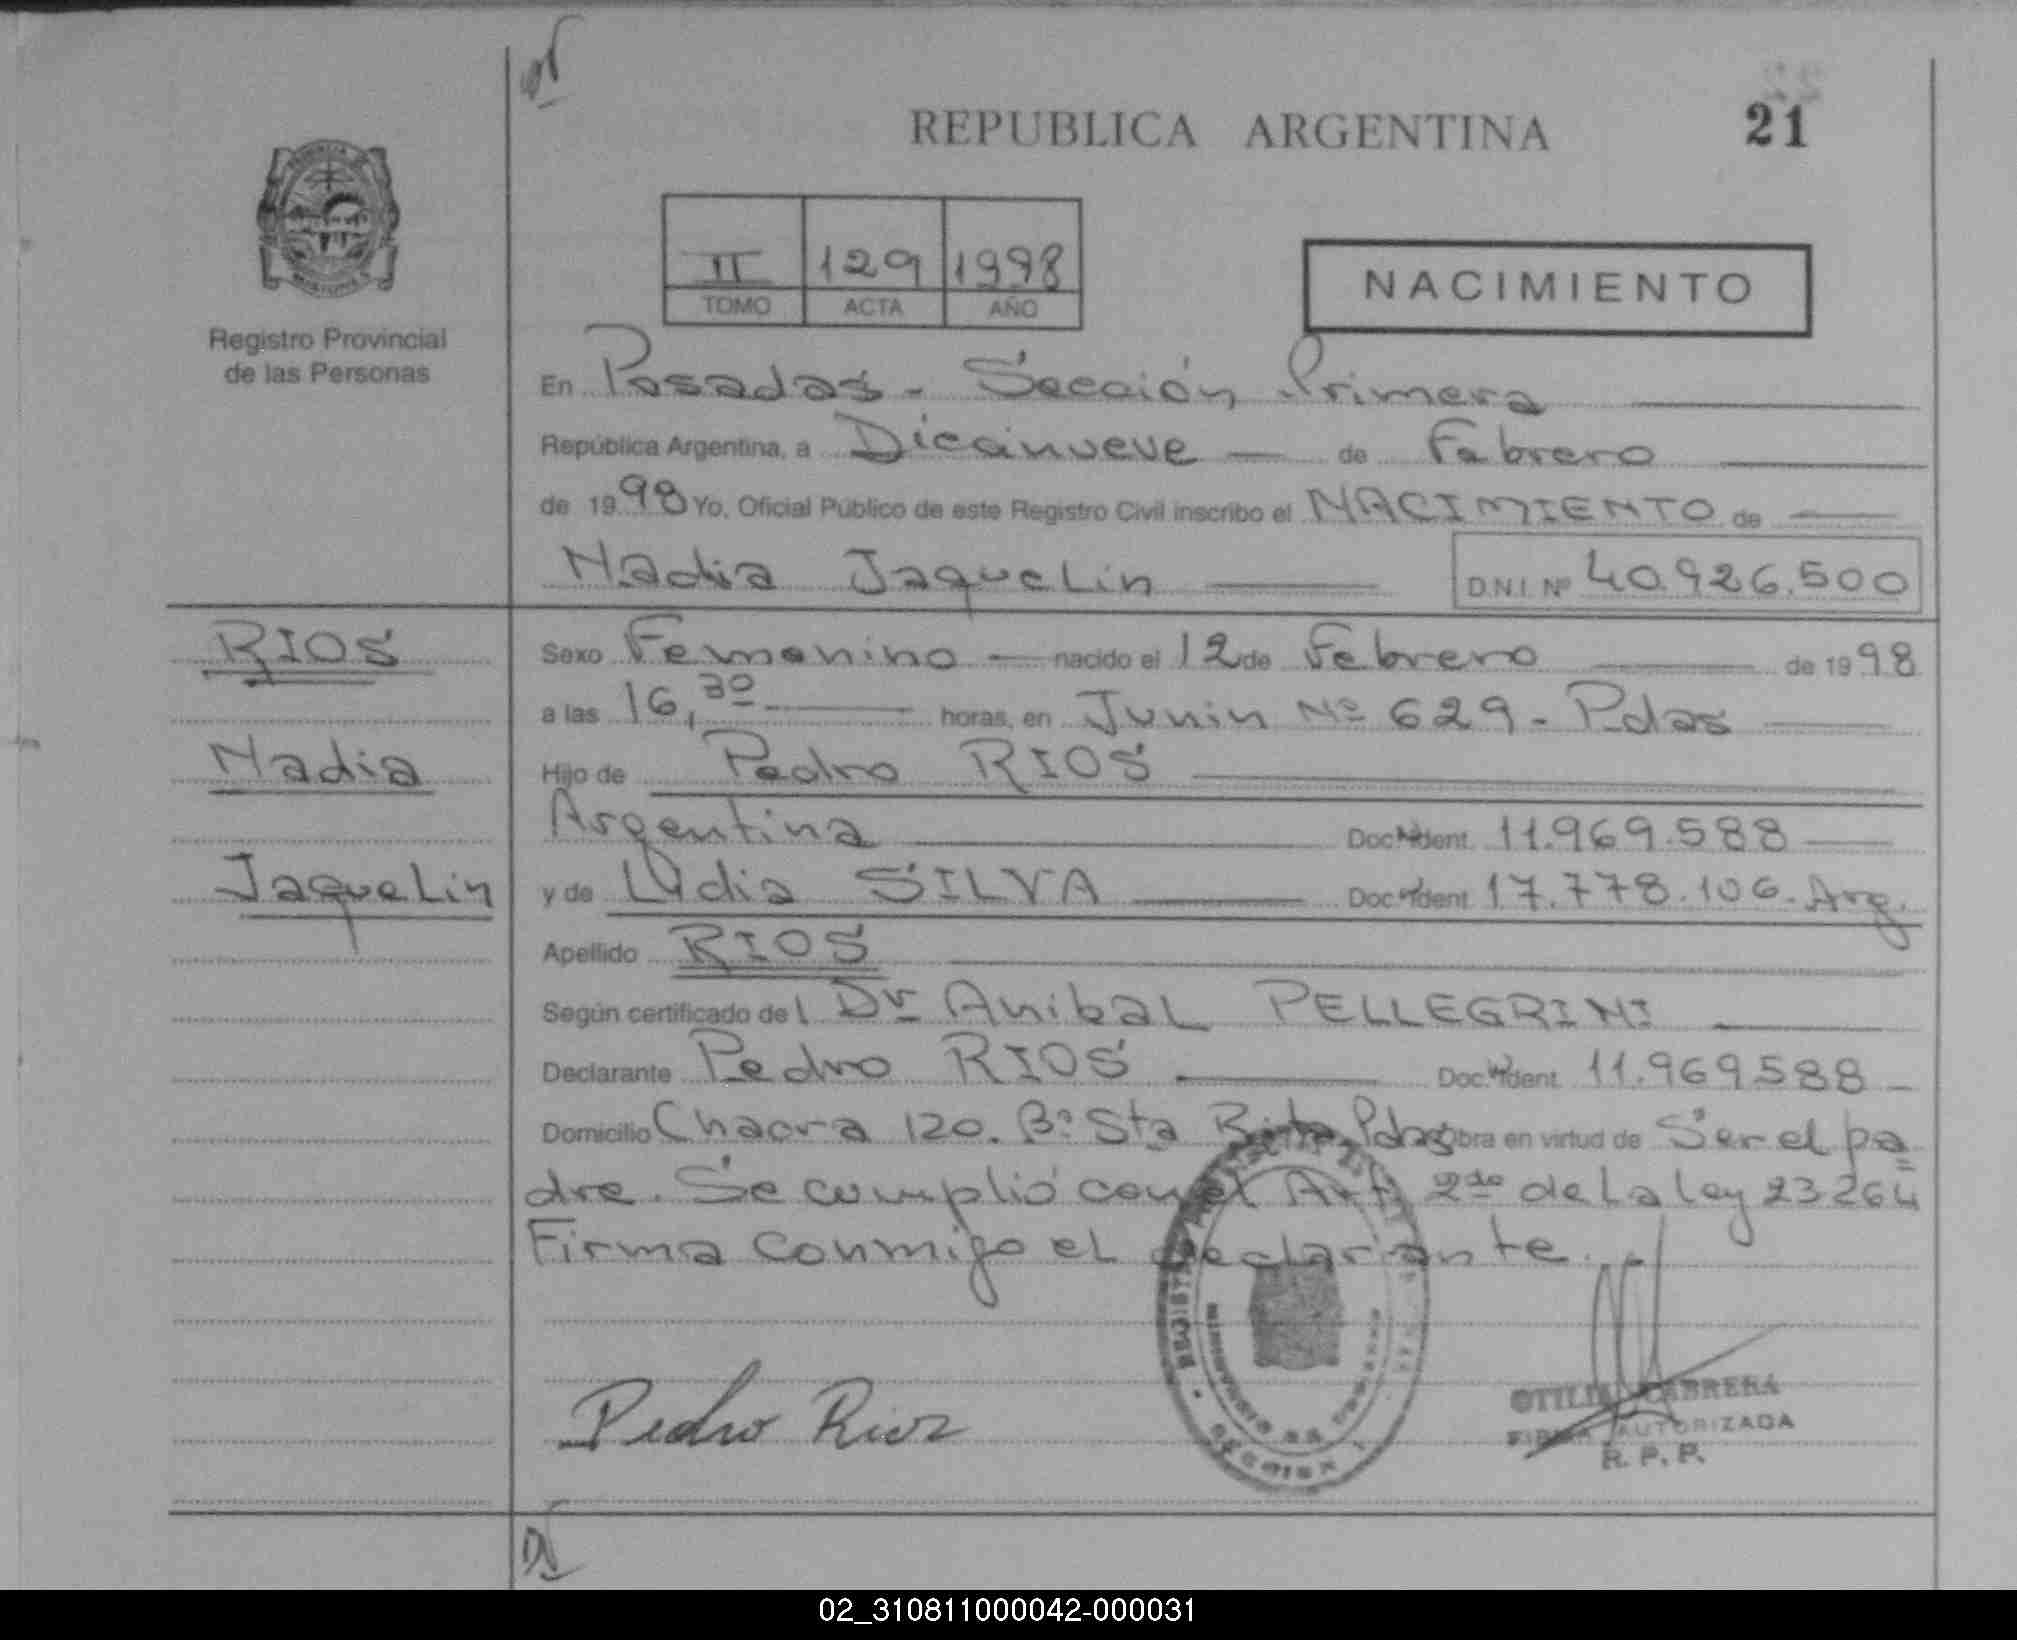 REPUBLICA ARGENTINA
21
II 129 1998
TOMO ACTA AÑO
NACIMIENTO
Registro Provincial
de las Personas
En Posadas - Sección Primera
República Argentina, a Diecinueve de Febrero
de 1998 Yo, Oficial Público de este Registro Civil inscribo el NACIMIENTO de
Nadia Jaquelin D.N.I. Nº 40.926.500
RIOS
Nadia
Jaquelin
Sexo Femenino nacido el 12 de Febrero de 1998
a las 16,30 horas, en Junin Nº 629 - Pdas
Hijo de Pedro RIOS
Argentina Doc. Ident. 11.969.588
y de Lydia SILVA Doc. Ident. 17.778.106. Arg.
Apellido RIOS
Según certificado del Dr Anibal PELLEGRINI
Declarante Pedro RIOS Doc. Ident. 11.969588
Domicilio Chacra 120. Bº Sta Rita Pdas obra en virtud de Ser el pa
dre. Se cumplió con el Art 2do de la ley 23264
Firma conmigo el declarante.
Pedro Rios
OTILIA CABRERA
FIRMA AUTORIZADA
R. P. P.
02_310811000042-000031